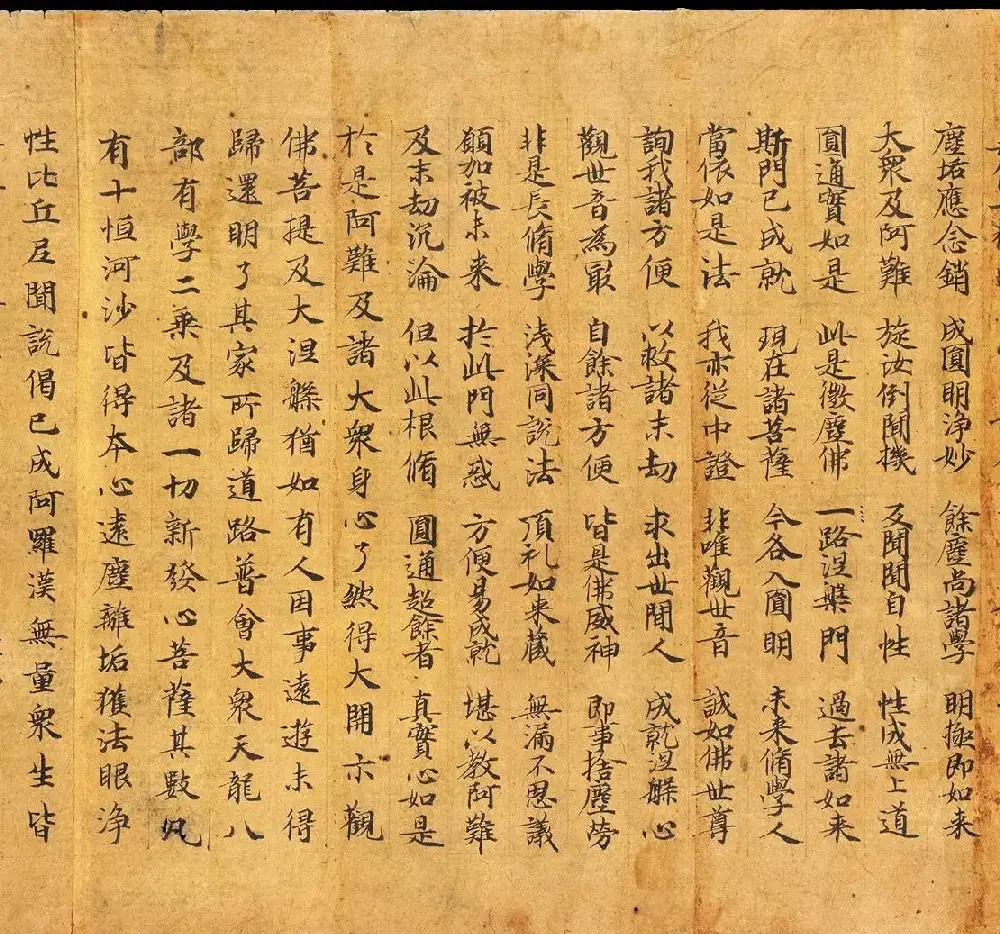 塵垢應念銷 成圓明淨妙 餘塵尚諸學 明極即如来
大衆及阿難 旋汝倒聞機 反聞聞自性 性成無上道
圓通實如是 此是微塵佛 一路涅槃門 過去諸如来
斯門已成就 現在諸菩薩 今各入圓明 未来脩學人
當依如是法 我亦從中證 非唯觀世音 誠如佛世尊
詢我諸方便 以救諸末劫 求出世間人 成就涅槃心
觀世音為最 自餘諸方便 皆是佛威神 即事捨塵勞
非是長脩學 淺深同說法 頂礼如来藏 無漏不思議
願加被未来 於此門無惑 方便易成就 堪以教阿難
及末劫沉淪 但以此根脩 圓通超餘者 真實心如是
於是阿難及諸大衆身心了然得大開示觀
佛菩提及大涅槃猶如有人因事遠遊未得
歸還明了其家所歸道路普會大衆天龍八
部有學二乗及諸一切新發心菩薩其數凡
有十恒河沙皆得本心遠塵離垢獲法眼淨
性比丘尼聞說偈已成阿羅漢無量衆生皆